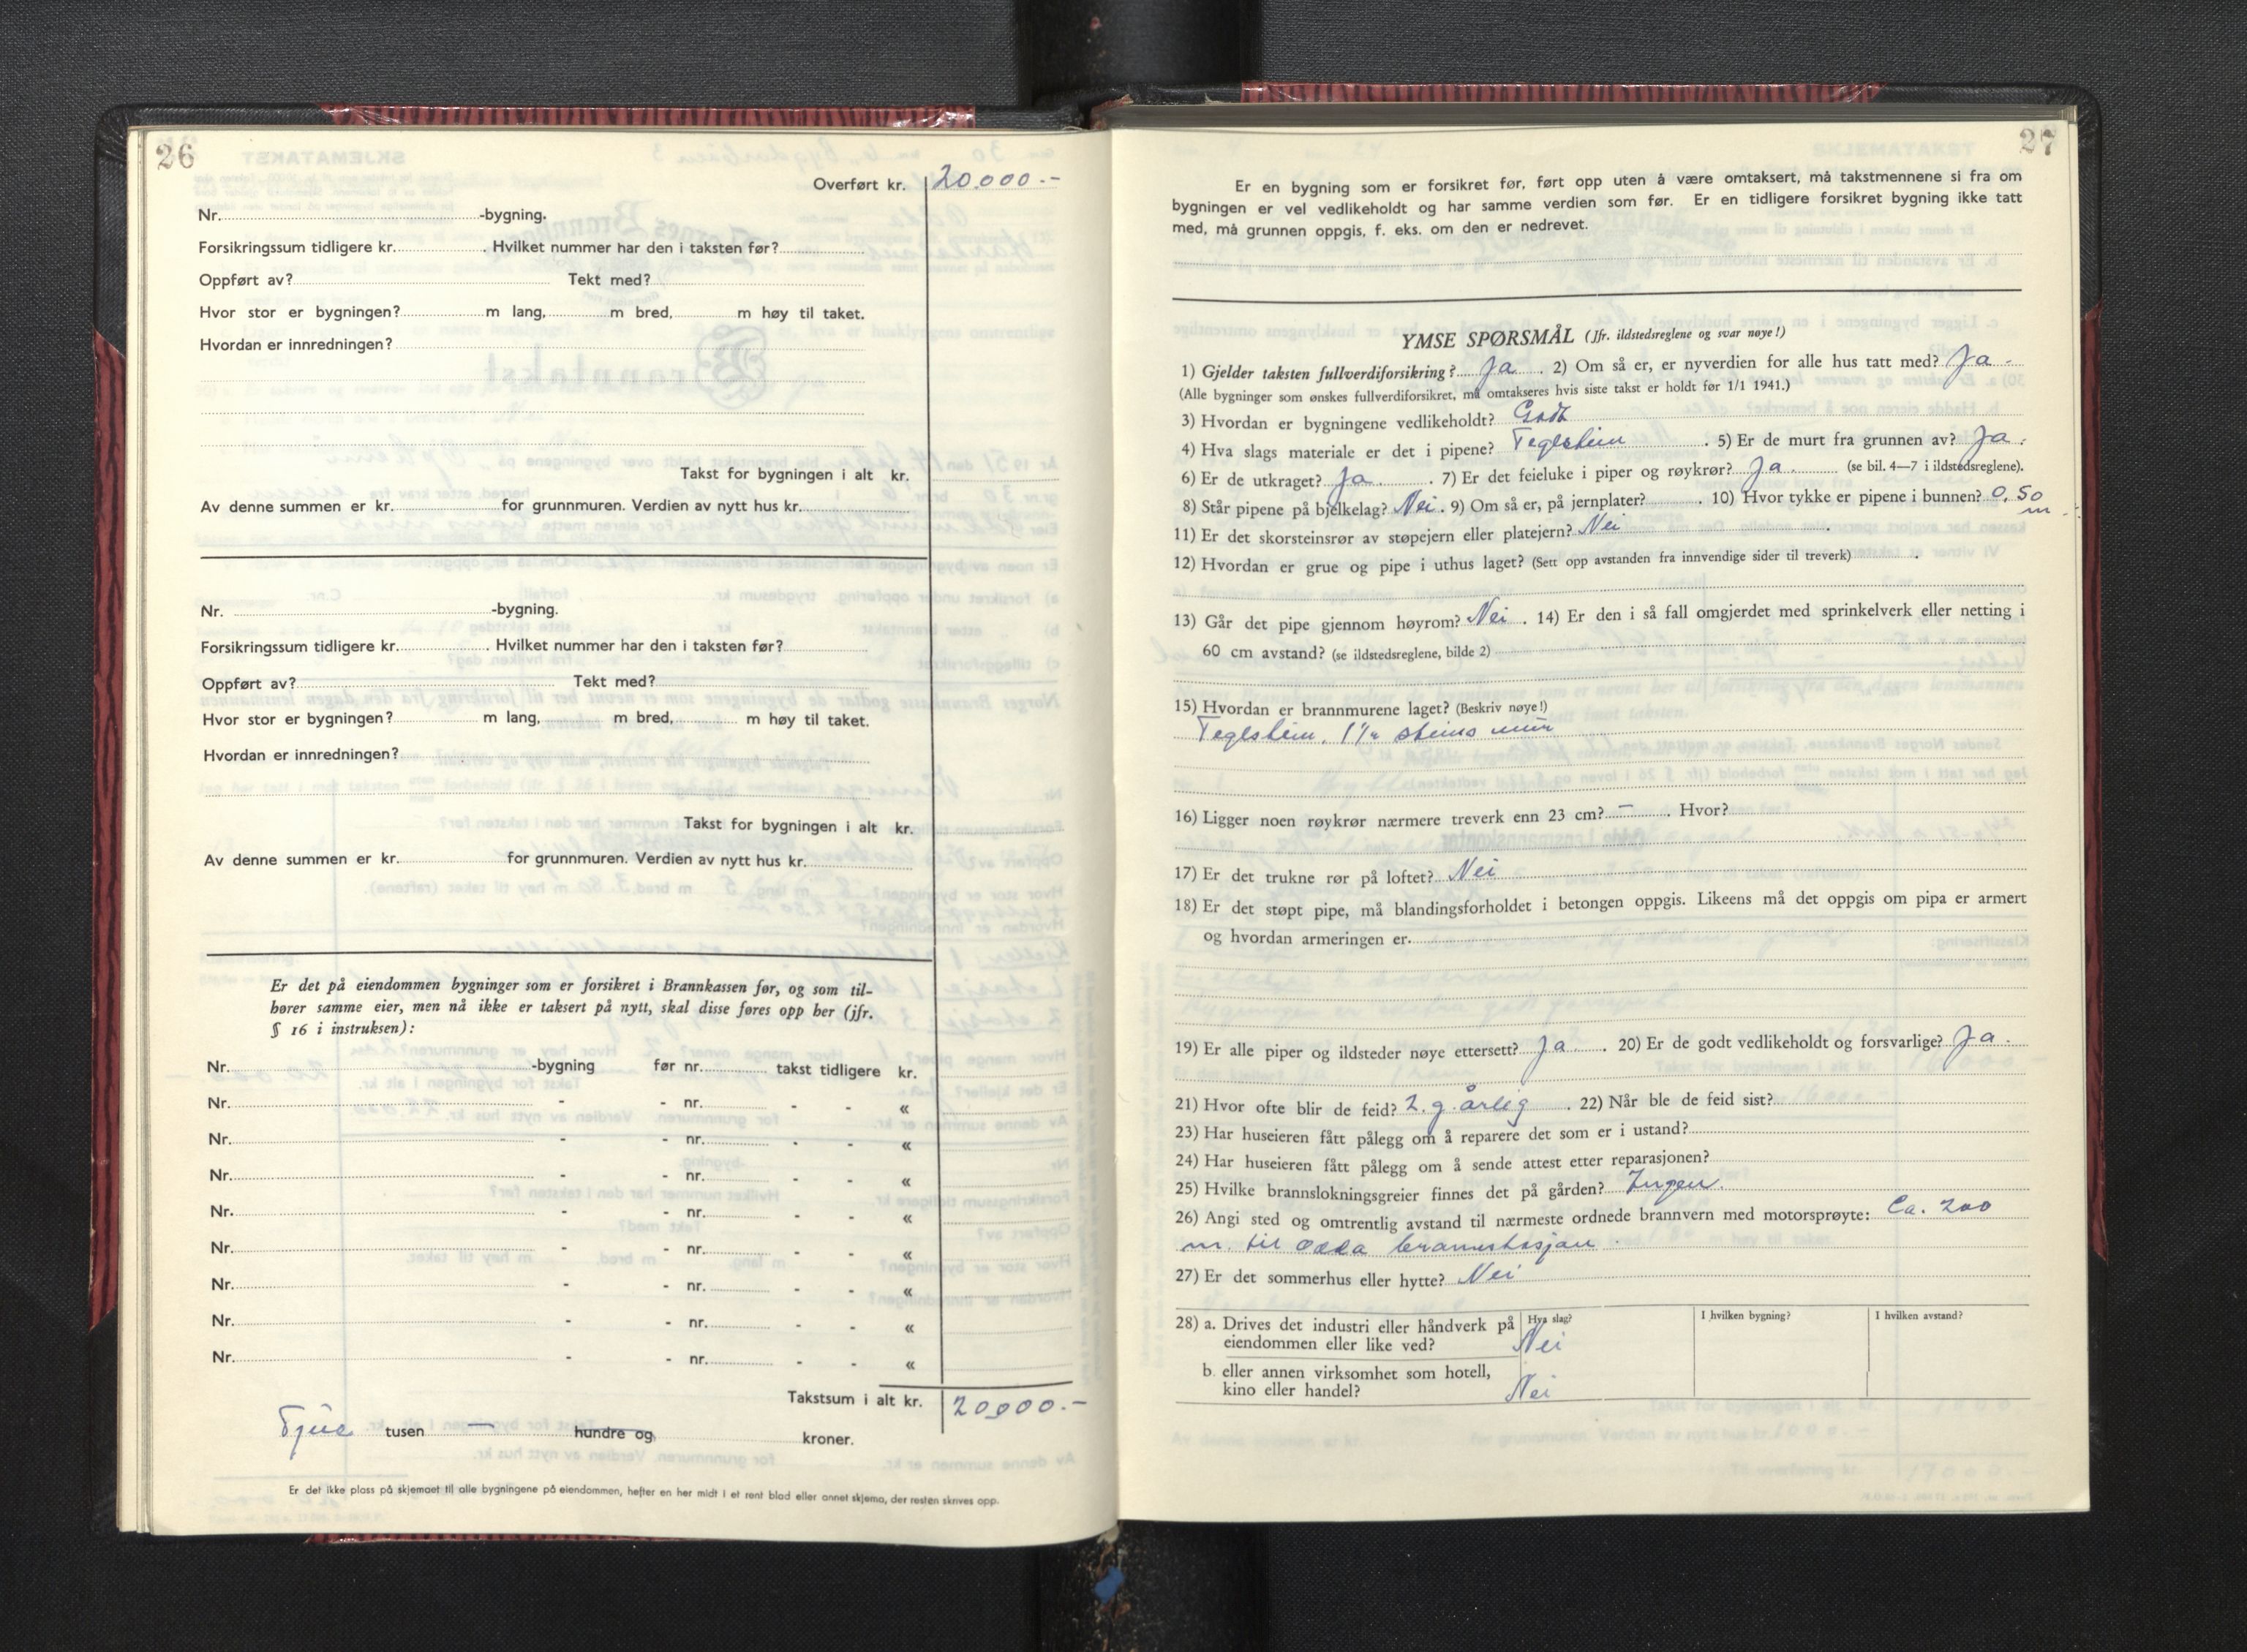 26
Overført kr. 20.000.-
Nr. -bygning.
Forsikringssum tidligere kr. . Hvilket nummer har den i taksten før?
Oppført av? Tekt med?
Hvor stor er bygningen? m lang, m bred, m høy til taket.
Hvordan er innredningen?
Takst for bygningen i alt kr.
Av denne summen er kr. for grunnmuren. Verdien av nytt hus kr.
Nr. -bygning.
Forsikringssum tidligere kr. . Hvilket nummer har den i taksten før?
Oppført av? Tekt med?
Hvor stor er bygningen? m lang, m bred, m høy til taket.
Hvordan er innredningen?
Takst for bygningen i alt kr.
Av denne summen er kr. for grunnmuren. Verdien av nytt hus kr.
Er det på eiendommen bygninger som er forsikret i Brannkassen før, og som til-
hører samme eier, men nå ikke er taksert på nytt, skal disse føres opp her (jfr.
§ 16 i instruksen):
Nr. -bygning før nr. takst tidligere kr.
Nr. - - nr. - - «
Nr. - - nr. - - «
Nr. - - nr. - - «
Nr. - - nr. - - «
Nr. - - nr. - - «
Nr. - - nr. - - «
Nr. - - nr. - - «
Nr. - - nr. - - «
Takstsum i alt kr. 20000.-
Tjue tusen — hundre og kroner.
Er det ikke plass på skjemaet til alle bygningene på eiendommen, hefter en her midt i et rent blad eller annet skjema, der resten skrives opp.
27
Er en bygning som er forsikret før, ført opp uten å være omtaksert, må takstmennene si fra om
bygningen er vel vedlikeholdt og har samme verdien som før. Er en tidligere forsikret bygning ikke tatt
med, må grunnen oppgis, f. eks. om den er nedrevet.
YMSE SPØRSMÅL (Jfr. ildstedsreglene og svar nøye!)
1) Gjelder taksten fullverdiforsikring? Ja . 2) Om så er, er nyverdien for alle hus tatt med? Ja -
(Alle bygninger som ønskes fullverdiforsikret, må omtakseres hvis siste takst er holdt før 1/1 1941.)
3) Hvordan er bygningene vedlikeholdt? Godt
4) Hva slags materiale er det i pipene? Teglstein . 5) Er de murt fra grunnen av? Ja.
6) Er de utkraget? Ja. . 7) Er det feieluke i piper og røykrør? Ja. (se bil. 4—7 i ildstedsreglene).
8) Står pipene på bjelkelag? Nei . 9) Om så er, på jernplater? . 10) Hvor tykke er pipene i bunnen? 0,50
m.
11) Er det skorsteinsrør av støpejern eller platejern? Nei .
12) Hvordan er grue og pipe i uthus laget? (Sett opp avstanden fra innvendige sider til treverk) .
13) Går det pipe gjennom høyrom? Nei . 14) Er den i så fall omgjerdet med sprinkelverk eller netting i
60 cm avstand? (se ildstedsreglene, bilde 2)
15) Hvordan er brannmurene laget? (Beskriv nøye!)
Teglstein. 1 1/2 steins mur
16) Ligger noen røykrør nærmere treverk enn 23 cm? — . Hvor?
17) Er det trukne rør på loftet? Nei
18) Er det støpt pipe, må blandingsforholdet i betongen oppgis. Likeens må det oppgis om pipa er armert
og hvordan armeringen er.
19) Er alle piper og ildsteder nøye ettersett? Ja . 20) Er de godt vedlikeholdt og forsvarlige? Ja.
21) Hvor ofte blir de feid? 2. g. årlig . 22) Når ble de feid sist?
23) Har huseieren fått pålegg om å reparere det som er i ustand?
24) Har huseieren fått pålegg om å sende attest etter reparasjonen?
25) Hvilke brannslokningsgreier finnes det på gården? Ingen.
26) Angi sted og omtrentlig avstand til nærmeste ordnede brannvern med motorsprøyte: Ca. 200
m. til Odda brannstasjon.
27) Er det sommerhus eller hytte? Nei
28) a. Drives det industri eller håndverk på eiendommen eller like ved? Hva slag? Nei I hvilken bygning? I hvilken avstand?
b. eller annen virksomhet som hotell, kino eller handel? Nei